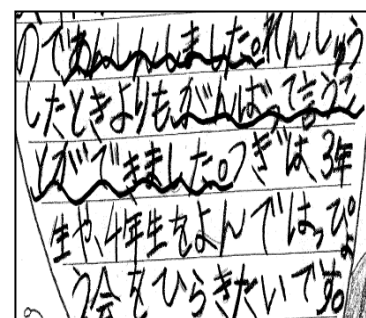 のであんしんしました。れんしゅう
したときよりも、がんばって言うこ
とができました。つぎは、3年
生や、4年生をよんではっぴょ
う会をひらきたいです。